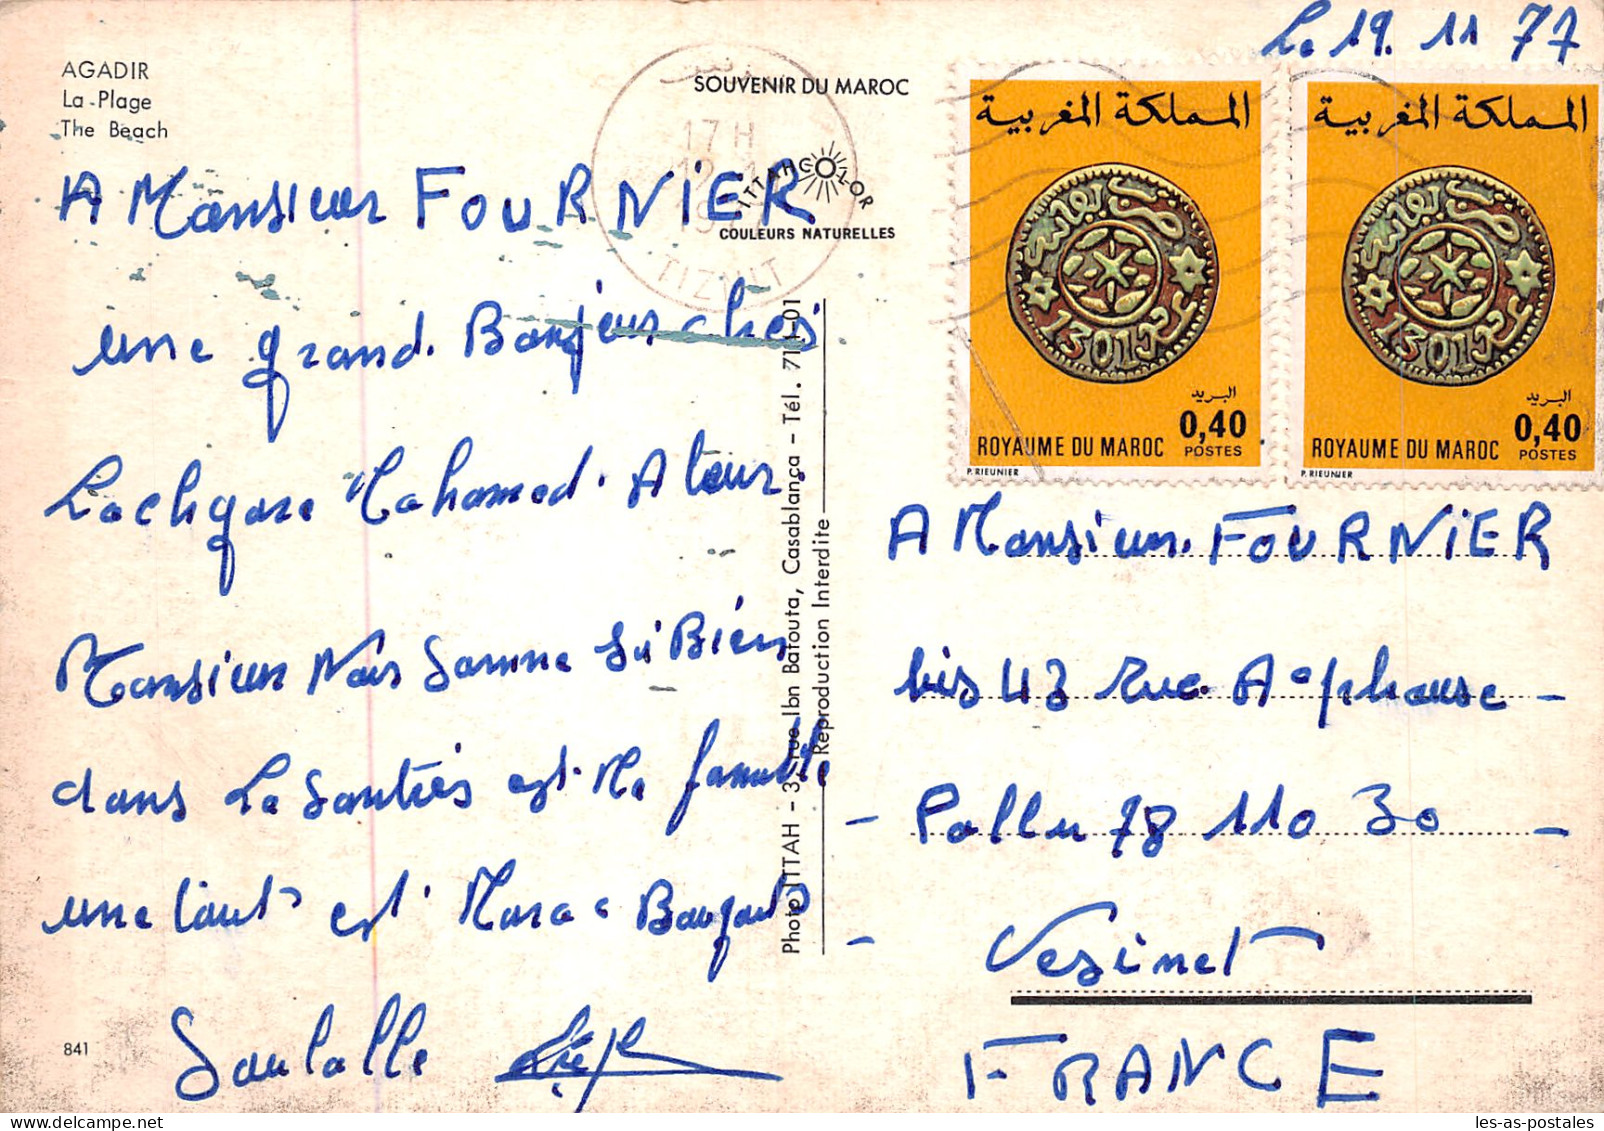 Le 19. 11 77
AGADIR
La Plage
The Beach
SOUVENIR DU MAROC
ITTAHCOLOR
COULEURS NATURELLES
17 H
TIZNIT
المملكة المغربية
1301
البريد
0,40
ROYAUME DU MAROC
POSTES
P. RIEUNIER
المملكة المغربية
1301
البريد
0,40
ROYAUME DU MAROC
POSTES
P. RIEUNIER
A Monsieur FOURNIER
une grand. Bonjeur ches
Lachgare Mohamed. A tour.
Monsieur Nous Somme Si Bien
dans La Santies est. Ma famille
une tout est Mara c Bouqouts
Soulalle
Photo ITTAH - 3, rue Ibn Batouta, Casablanca - Tél. 711-01
Reproduction Interdite
A Monsieur. FOURNIER
bis 43 Rue. A phouse -
- Pallu 78 110 30 -
- Vesinet
FRANCE
841
les-as-postales